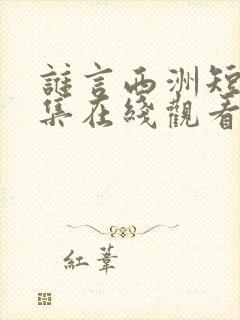 誰言西洲短
集在綫觀看
紅葦